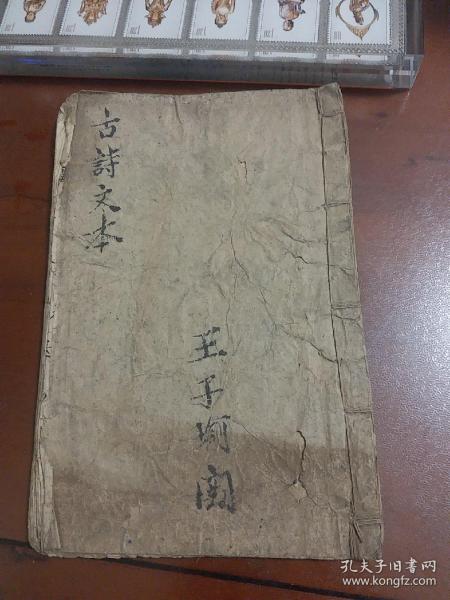 古詩文本
王子珂閱
孔夫子旧书网
www.kongfz.com